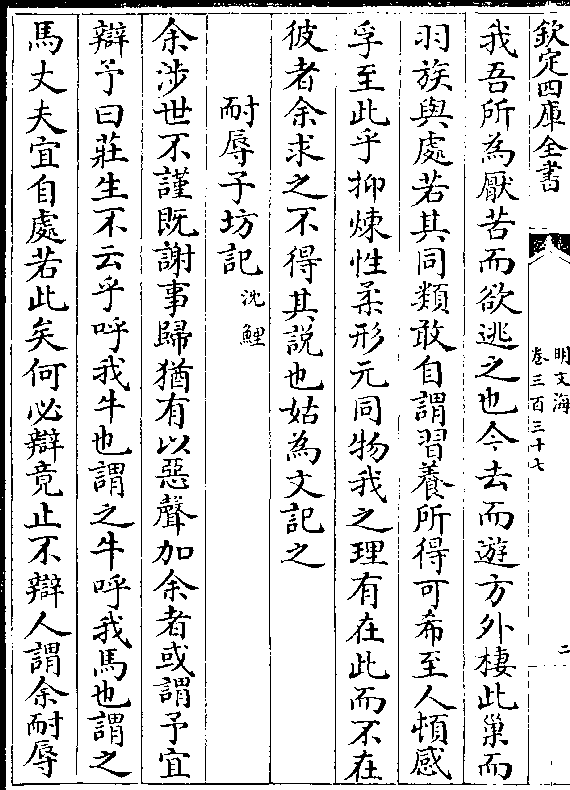 欽定四庫全書
明文海
卷三百三十七
二
我吾所為厭苦而欲逃之也今去而遊方外棲此巢而
羽族與處若其同類敢自謂習養所得可希至人頓感
孚至此乎抑煉性柔形元同物我之理有在此而不在
彼者余求之不得其説也姑為文記之
耐辱子坊記沈鯉
余涉世不謹既謝事歸猶有以惡聲加余者或謂予宜
辯予曰莊生不云乎呼我牛也謂之牛呼我馬也謂之
馬丈夫宜自處若此矣何必辯竟止不辯人謂余耐辱